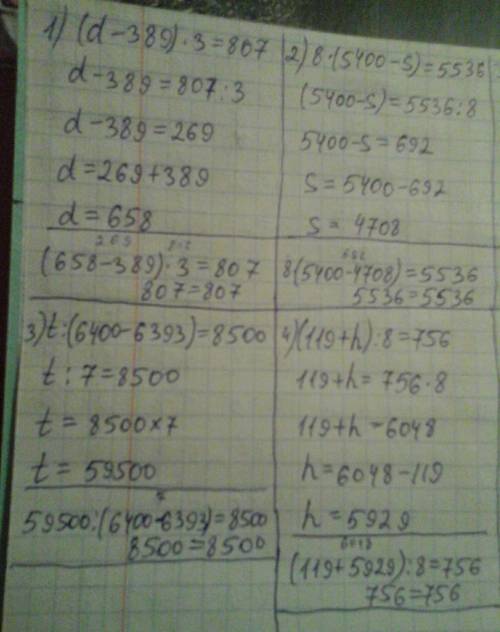 1) (d-389)·3=807
d-389=807:3
d-389=269
d=269+389
d=658
269 807
(658-389)·3=807
807=807
2) 8·(5400-s)=5536
(5400-s)=5536:8
5400-s=692
s=5400-692
s=4708
692
8(5400-4708)=5536
5536=5536
3) t:(6400-6393)=8500
t:7=8500
t=8500×7
t=59500
7
59500:(6400-6393)=8500
8500=8500
4) (119+h):8=756
119+h=756·8
119+h=6048
h=6048-119
h=5929
6048
(119+5929):8=756
756=756